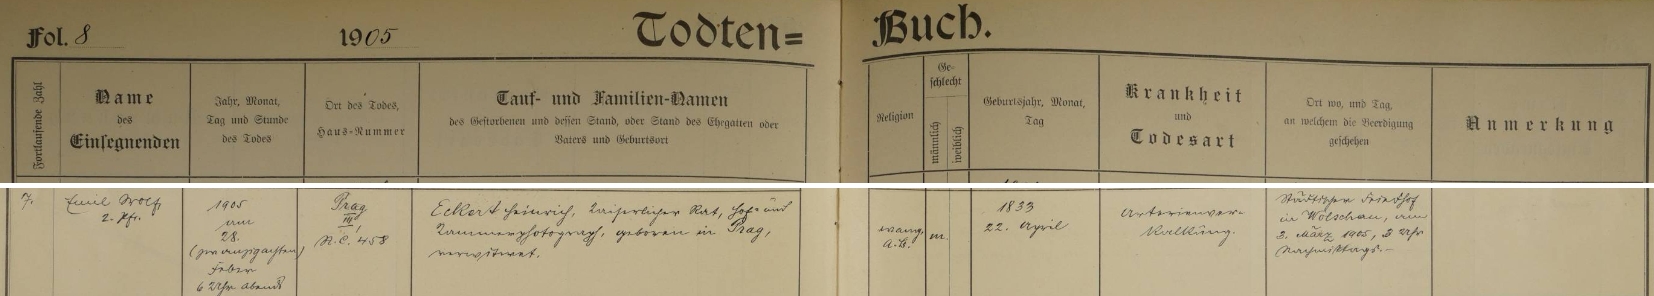 Fol. 8
1905
Todten=
Buch.
Fortlaufende Zahl
Name
des
Einsegnenden
Jahr, Monat,
Tag und Stunde
des Todes
Ort des Todes,
Haus-Nummer
Tauf- und Familien-Namen
des Gestorbenen und dessen Stand, oder Stand des Ehegatten oder
Vaters und Geburtsort
Religion
Ge-
schlecht
männlich
weiblich
Geburtsjahr, Monat,
Tag
Krankheit
und
Todesart
Ort wo, und Tag,
an welchem die Beerdigung
geschehen
Anmerkung
7.
Emil Wolf
2. Pfr.
1905
am
28.
(zwanzigachten)
Feber
6 Uhr abends
Prag
III,
N.C. 458
Eckert Heinrich, Kaiserlicher Rat, Hof- und
Kammerphotograph, geboren in Prag,
verwitwet.
evang.
A.B.
m.
1833
22. April
Arterienver-
kalkung.
Städtischer Friedhof
in Wolschan, am
3. März 1905, 3 Uhr
Nachmittags.-